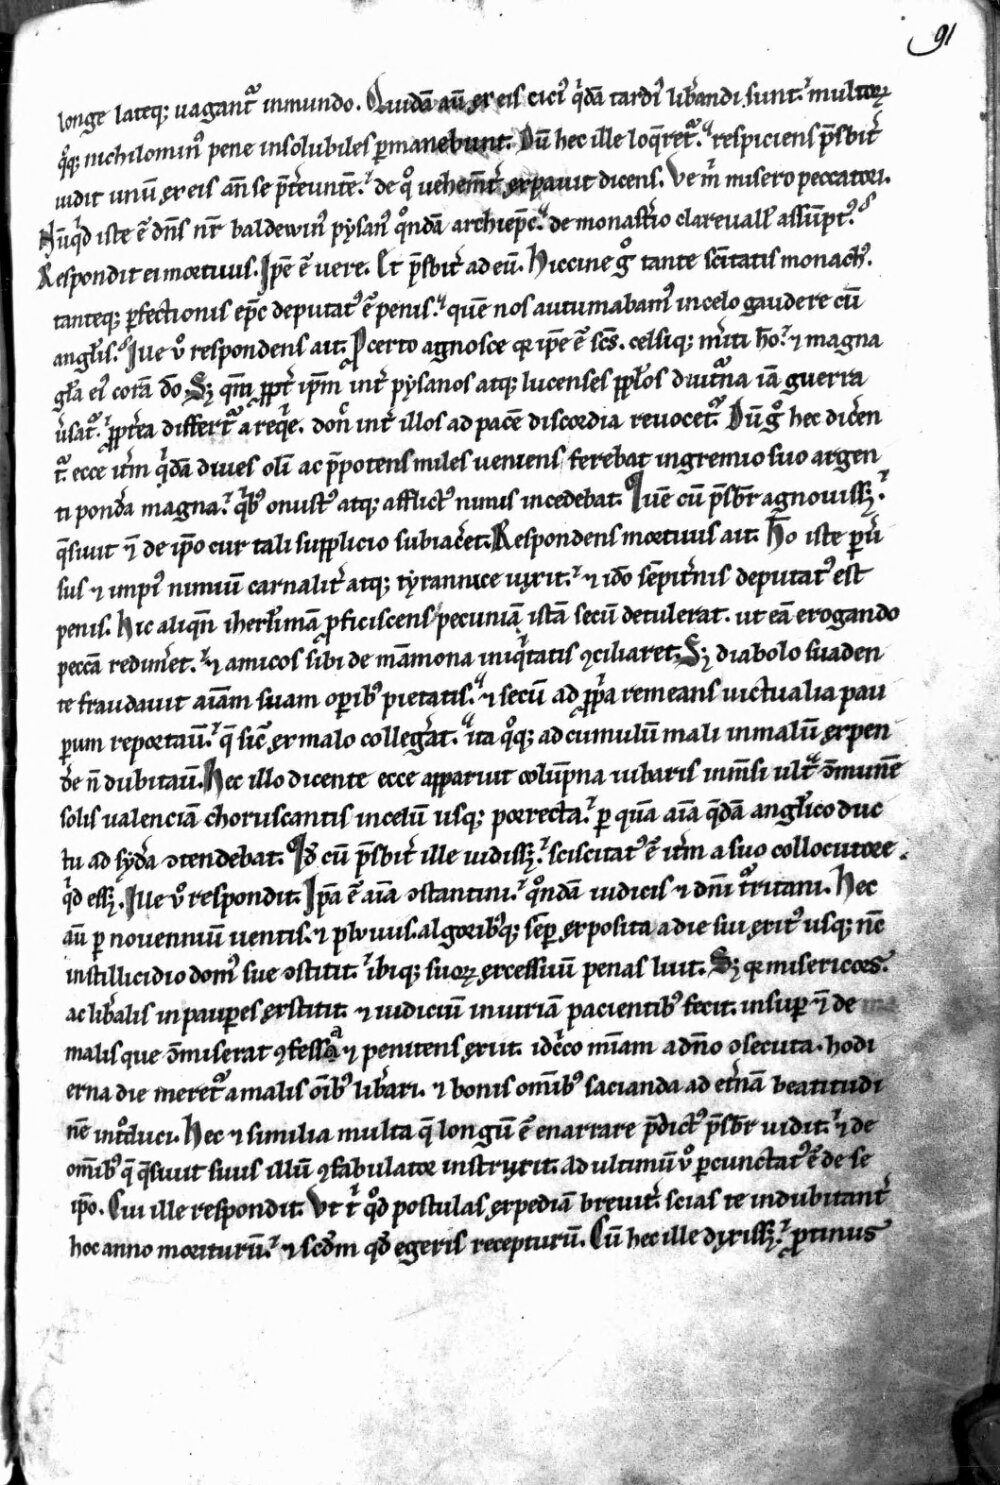 91
longe lateq; uagant᷑ inmundo. Quidā aū ex eis cici᷒ q̇dā tardi᷒ lib̾andi sunt. multoꝝ
qͦq; nichilomin᷒ pene insolubiles ꝑmanebunt. Dū hec ille loq̄ret᷑. respiciens p̄sbit̾
uidit unū ex eis an̄ se p̄t̾euntē. de qͦ uehem̄t̾ expauit dicens. Ve ṁ misero peccatori.
Nūq̇d iste ē dn̄s nr̄ baldewin᷒ pysan᷒ qͦndā archiep̄c. de monast̾io clareuall᷒ assūpt᷒.
Respondit ei mortuus. Ip̄e ē uere. Et p̄sbit̾ ad eū. Hiccine gͦ tante sc̄itatis monach᷒.
tanteq; ꝑfectionis ep̄c deputat᷒ ē penis. quē nos autumabam᷒ incelo gaudere cū
angl̄is. Ille ů respondens ait. Pcerto agnosce qr ip̄e ē sc̄s. celsiq; m̾iti ho. ⁊ magna
gl̄a ei᷒ corā dō Sꝫ qm̄ ꝓpt̾ ip̄m int̾ pysanos atq; lucenses ppl̄os diut̾na iā guerra
ů̾sat᷑. ꝓpt̾ea differt᷑ a req̇e. don̄ int̾ illos ad pacē discordia reuocet᷑. Dū gͦ hec dicen
t᷑. ecce it̾m q̇dā diues oli᷒ ac p̄potens miles ueniens ferebat ingremio suo argen
ti pond̾a magna. q̇b᷒ onust᷒ atq; afflict᷒ nimis incedebat. Quē cū p̄sbr̄ agnouissꝫ.
q̄siuit ⁊ de ip̄o cur tali supplicio subiac̾et. Respondens mortuus ait. Ho iste ꝑů̾
sus ⁊ impi᷒ nimiū carnalit̾ atq; tyrannice uixit. ⁊ idō sēpit̾nis deputat᷒ est
penis. Hic aliqn̄ iherl̄imā ꝓficiscens pecuniā istā secū detulerat. ut eā erogando
peccā redim̾et. ⁊ amicos sibi de māmona iniq̇tatis ꝯciliaret. Sꝫ diabolo suaden
te fraudauit aīam suam oꝑib᷒ pietatis. ⁊ secū ad ꝓp̾a remeans uictualia pau
ꝑum reportau̅. q̄ sic᷒ ex malo colleg̾at. ita qͦq; ad cumulū mali inmalū expen
d̾e n̄ dubitau̅. Hec illo dicente ecce apparuit colūpna iubaris inm̄si ult᷑ ↄmunē
solis ualenciā choruscantis incelū usq; porrecta. ꝑ quā aīa q̄dā angl̄ico duc
tu ad syd̾a ↄtendebat. Qd̄ cū p̄sbit̾ ille uidissꝫ. sciscitat᷒ ē it̾m a suo collocutore.
q̇d essꝫ. Ille ů respondit. Ip̄a ē aīa ↄstantini. qͦndā iudicis ⁊ dn̄i t᷑ritani. Hec
aū ꝑ nouenniū uentis. ⁊ pluuiis. algorib᷒q; semꝑ exposita a die sui exit᷒ usq; nē
instillicidio dom᷒ sue ↄstitit. ibiq; suoꝝ excessuū penas luit. Sꝫ qr misericors.
ac lib̾alis in pauꝑes exstitit. ⁊ iudiciū iniuriā pacientib᷒ fecit. insuꝑ ⁊ de
malis que ↄmiserat ꝯfessa ⁊ penitens exiit. idc̾co mīam a dn̄o ↄsecuta. hodi
erna die meret᷑ a malis oīb᷒ lib̾ari. ⁊ bonis omīb᷒ sacianda ad et̾nā beatitudi
nē int᷑duci. Hec ⁊ similia multa q̄ longū ē enarrare p̄dict᷒ p̄sbr̄ uidit. ⁊ de
omīb᷒ q̄ q̄siuit suus illū ꝯfabulator instruxit. Ad ultimū ů ꝑcunctat᷒ ē de se
ip̄o. Cui ille respondit. Vt ṫ qͦd postulas expediā breuit̾. scias te indubitant̾
hoc anno moriturū. ⁊ sc̄dm qd̄ egeris recepturū. Cū hec ille dixissꝫ. ꝓtinus